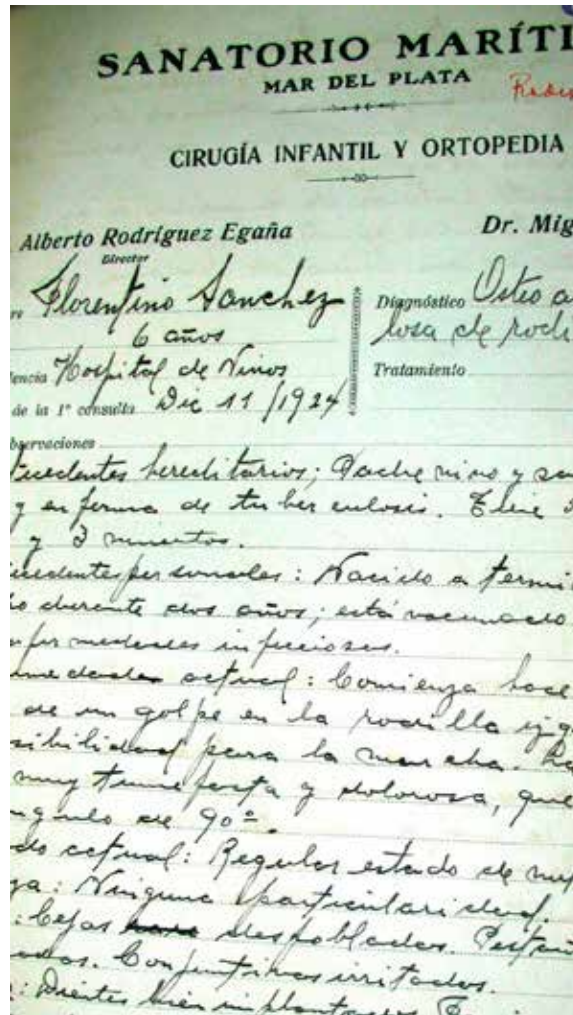 SANATORIO MARÍTI
MAR DEL PLATA
CIRUGÍA INFANTIL Y ORTOPEDIA
Alberto Rodríguez Egaña
Director
Dr. Mig
re Florentino Sanchez
6 años
Diagnóstico Osteo a
losa de rodi
dencia Hospital de Ninos
Tratamiento
de la 1ª consulta Dic 11/1924
bservaciones
tecedentes hereditarios; Padre vivo y sa
y enferma de tuberculosis. Tiene
y 3 muertos.
tecedentes personales: Nacido a termi
o durante dos años; está vacunado
nfermedades infeciosas.
medades actual: Comienza hace
de un golpe en la rodilla izq
sibilidad para la marcha.
muy tumefacta y dolorosa, que
ngulo de 90º.
do actual: Regular estado de nut
Ninguna particularidad.
: Cejas despobladas. Pestañ
Conjuntivas irritadas.
: Dientes bien implantados